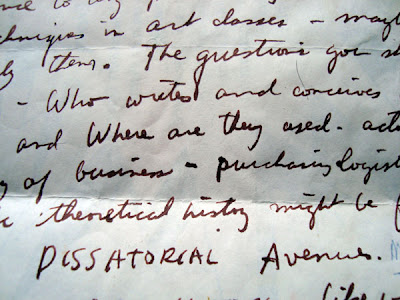 to any
techniques in art classes - mayb
them. The questions you s
- Who writes and conceives
and Where are they used - act
of business - purchasing logist
theoretical history might be
DISSATORIAL Avenues.
like